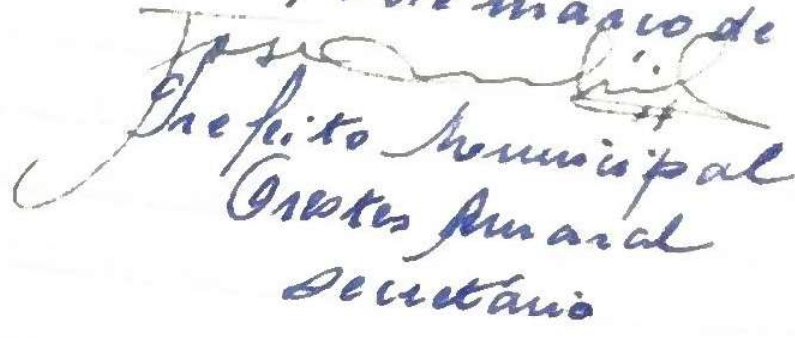 de março de
José
Prefeito Municipal
Orestes Amaral
secretário